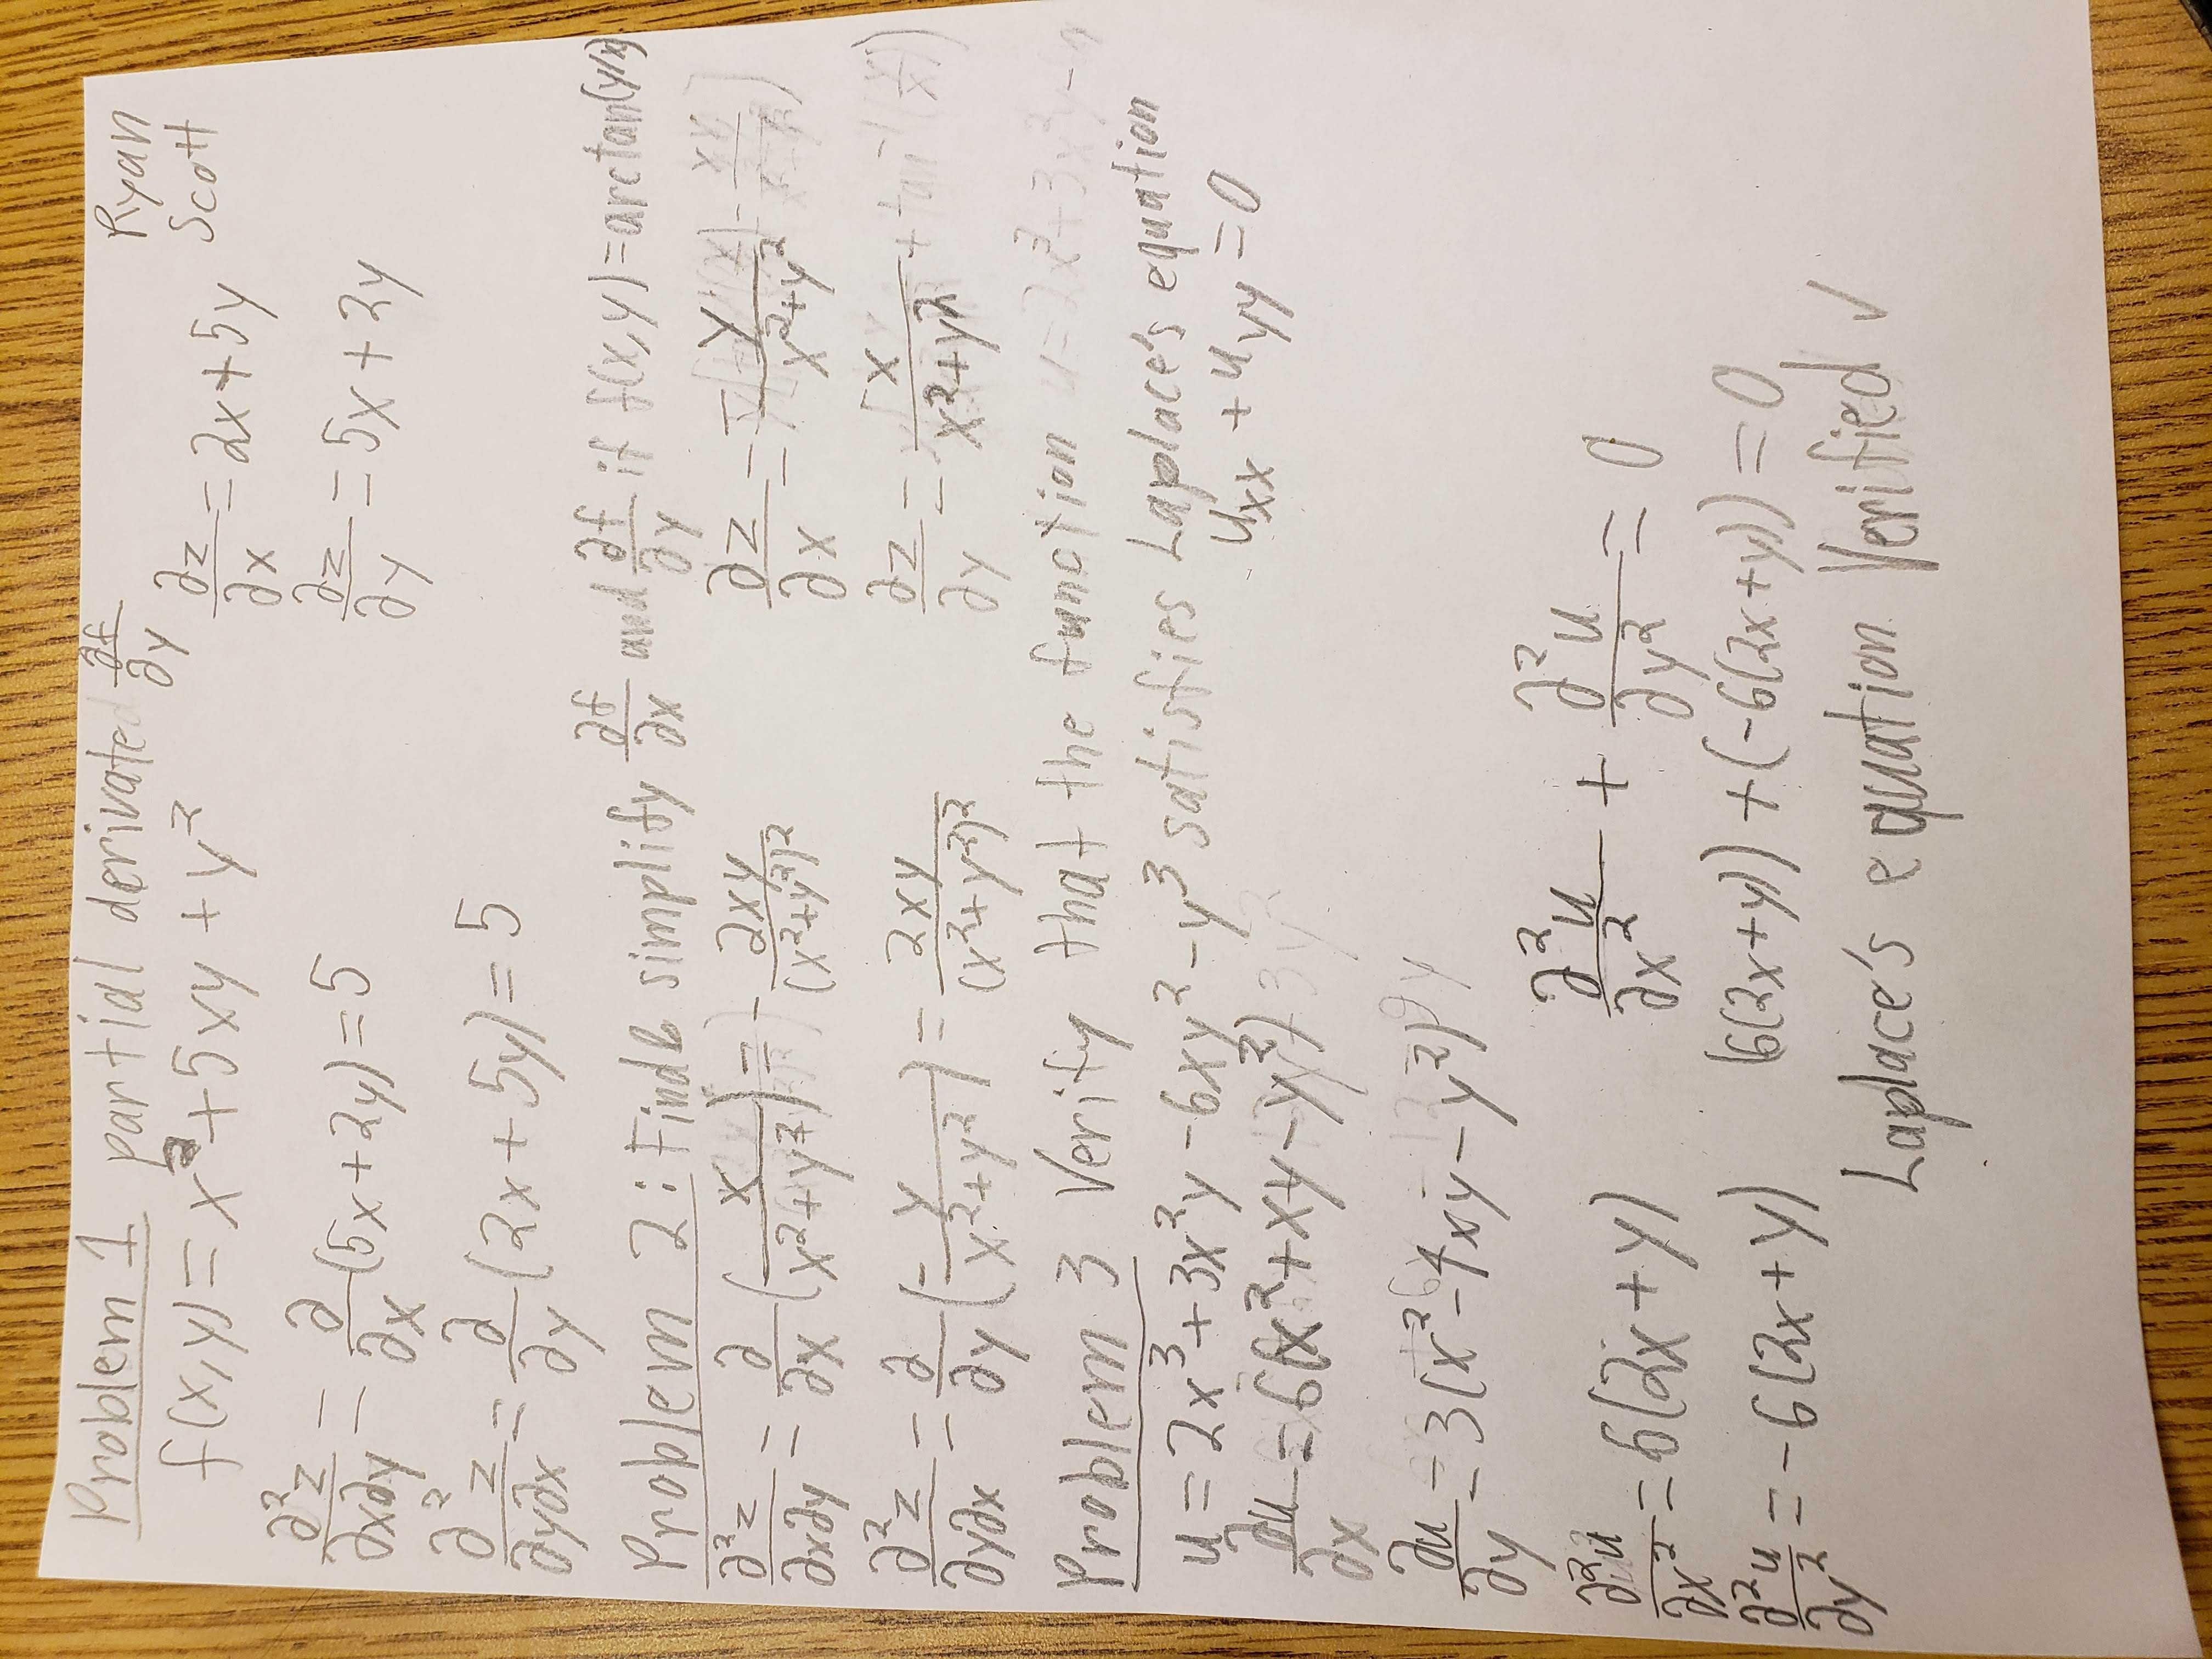 Problem 1 partial derivated ∂f/∂y
Ryan Scott
f(x,y) = x² + 5xy + y²
∂z/∂x = 2x + 5y
∂²z/∂x∂y = ∂/∂x (5x + 2y) = 5
∂z/∂y = 5x + 2y
∂²z/∂y∂x = ∂/∂y (2x + 5y) = 5
Problem 2: Find & simplify ∂f/∂x and ∂f/∂y if f(x,y) = arctan(y/x)
∂²z/∂x∂y = ∂/∂x (x/(x²+y²)) = - 2xy/(x²+y²)²
∂z/∂x = -y/(x²+y²)
∂²z/∂y∂x = ∂/∂y (- y/(x²+y²)) = 2xy/(x²+y²)²
∂z/∂y = x/(x²+y²)
Problem 3 Verify that the function
u = 2x³ + 3x²y - 6xy² - y³ satisfies Laplace's equation
uxx + uyy = 0
∂u/∂x = 6(x² + xy - y²)
∂u/∂y = 3(x² - 4xy - y²)
∂²u/∂x² = 6(2x + y)
∂²u/∂x² + ∂²u/∂y² = 0
∂²u/∂y² = -6(2x + y)
(6(2x+y)) + (-6(2x+y)) = 0
Laplace's equation Verified ✓